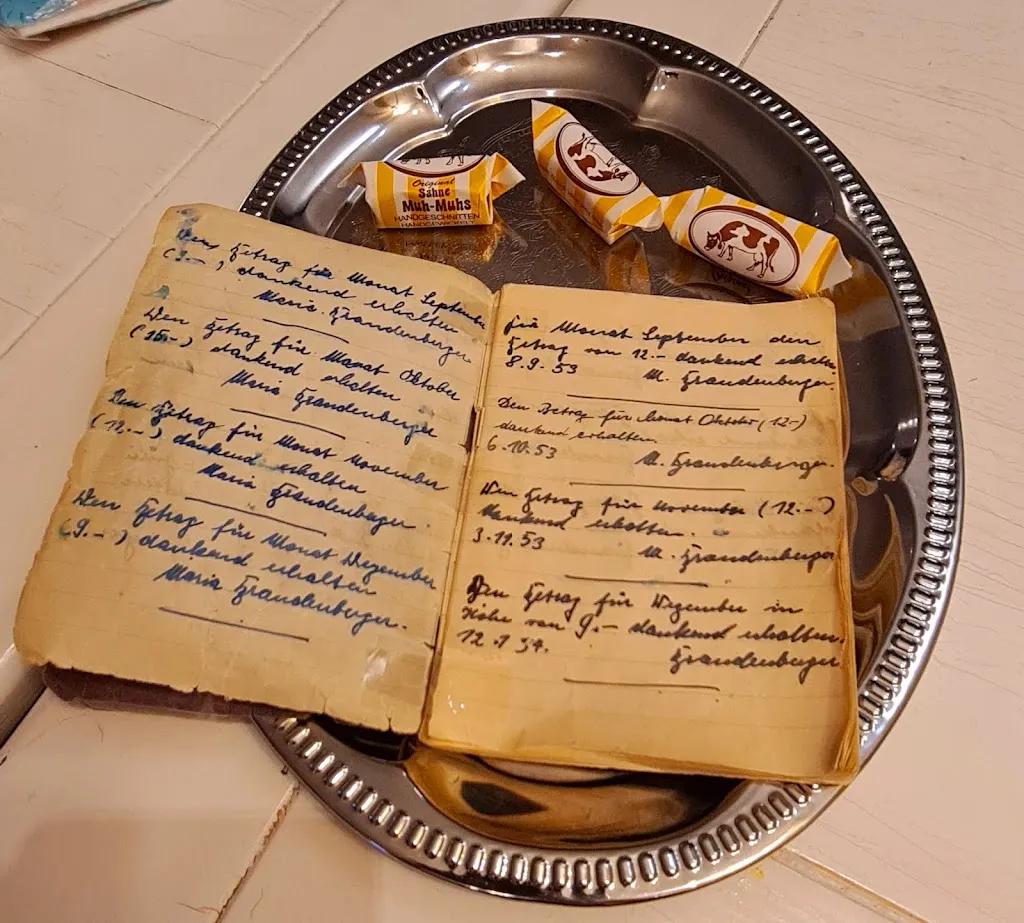 Original
Sahne
Muh-Muhs
HANDGESCHNITTEN
HANDGEWICKELT
Den Betrag für Monat September
(9.-) dankend erhalten
Maria Brandenberger
Den Betrag für Monat Oktober
dankend erhalten
Maria Brandenberger
Den Betrag für Monat November
(12.-) dankend erhalten
Maria Brandenberger.
Den Betrag für Monat Dezember
(9.-) dankend erhalten
Maria Brandenberger.
für Monat September den
Betrag von 12.- dankend erhalten
8.9.53 M. Brandenberger.
Den Betrag für Monat Oktober (12.-)
dankend erhalten.
6.10.53 M. Brandenberger.
Den Betrag für November (12.-)
dankend erhalten.
3.11.53 M. Brandenberger
Den Betrag für Dezember in
Höhe von 9.- dankend erhalten.
12.1 54. Brandenberger